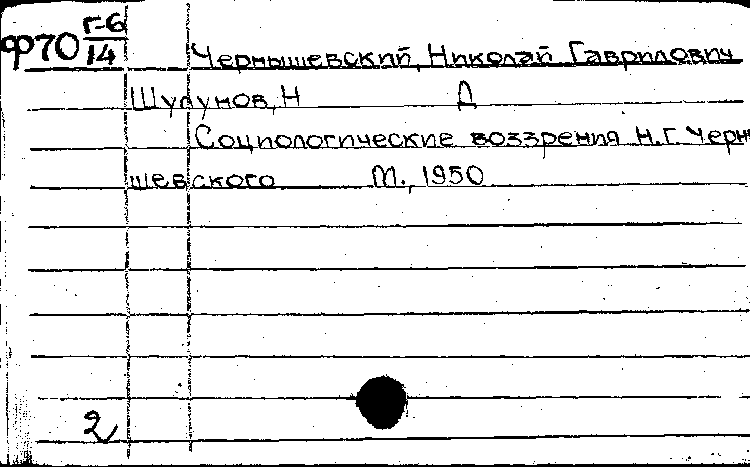 Ф70 г-6/14
Чернышевский, Николай Гаврилович
Шулунов, Н Д
Социологические воззрения Н.Г. Черны
шевского М., 1950
2